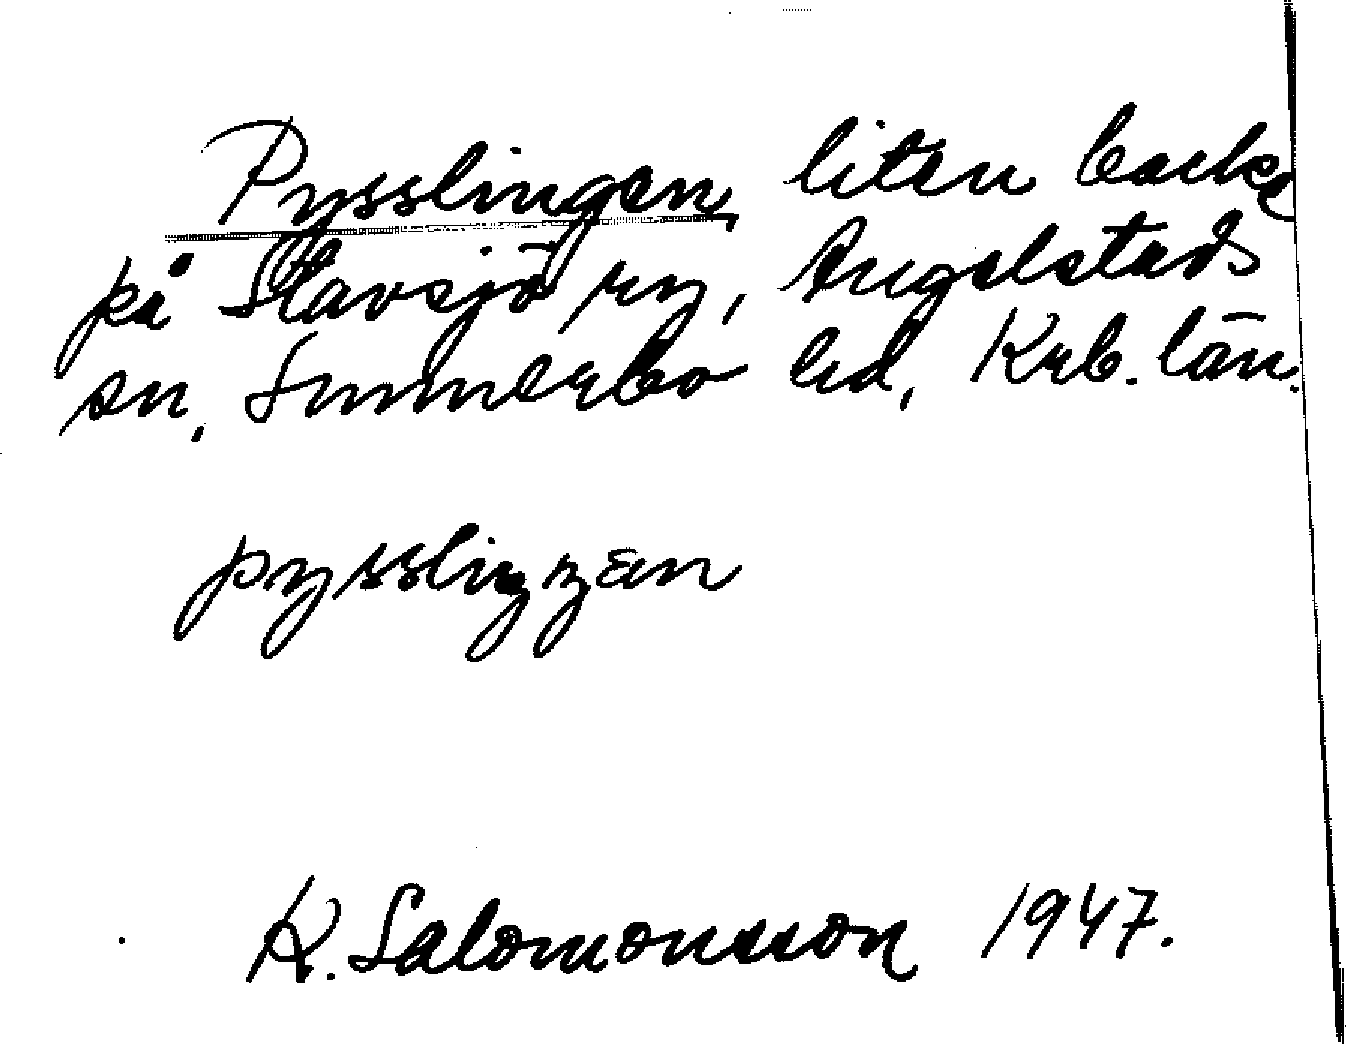 Pysslingen, liten backe
på Stavsjö ry, Angelstads
sn. Sunnerbo hd, Krb. län.
pyssliŋŋen
K. Salomonsson 1947.